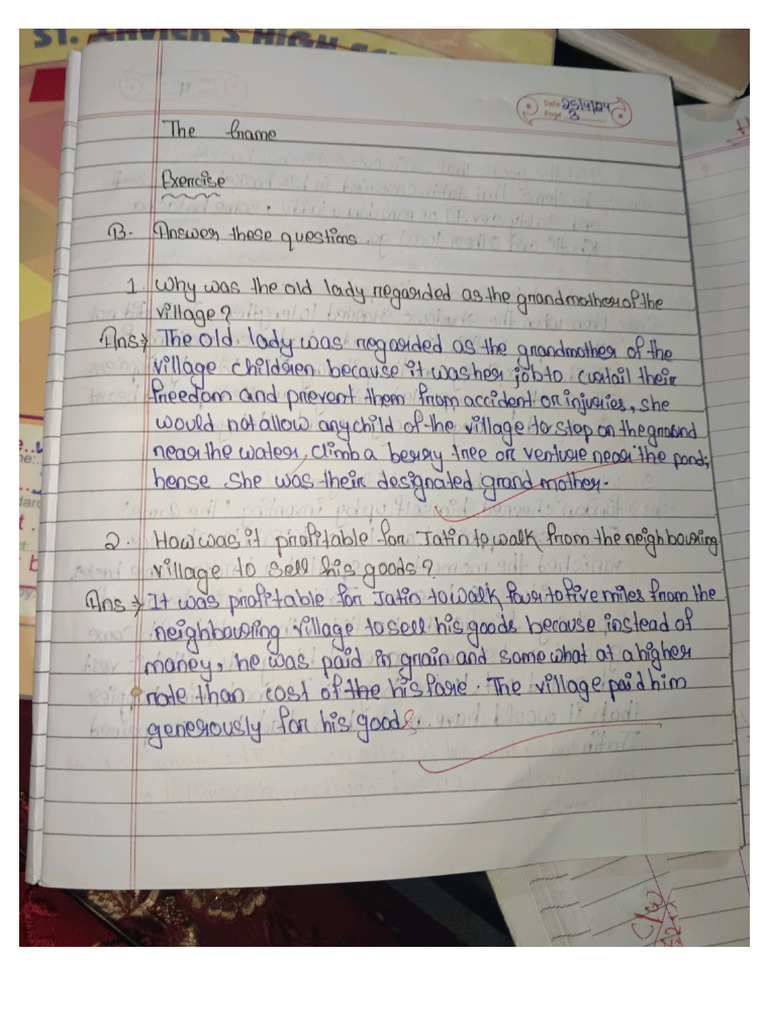 ST. XAVIER'S HIGH
Date 25/4/24
Page 3
The Game
Exercise
B. Answer these questions.
1. Why was the old lady regarded as the grandmother of the
village?
Ans→ The old lady was regarded as the grandmother of the
village children because it was her job to curtail their
freedom and prevent them from accident or injuries, she
would not allow any child of the village to step on the ground
near the water, climb a berry tree or venture near the pond;
hense she was their designated grand mother.
2. How was it profitable for Jatin to walk from the neighbouring
village to sell his goods?
Ans→ It was profitable for Jatin to walk four to five miles from the
neighbouring village to sell his goods because instead of
money, he was paid in grain and some what at a higher
rate than cost of the his farie. The village paid him
generously for his goods.
C/w